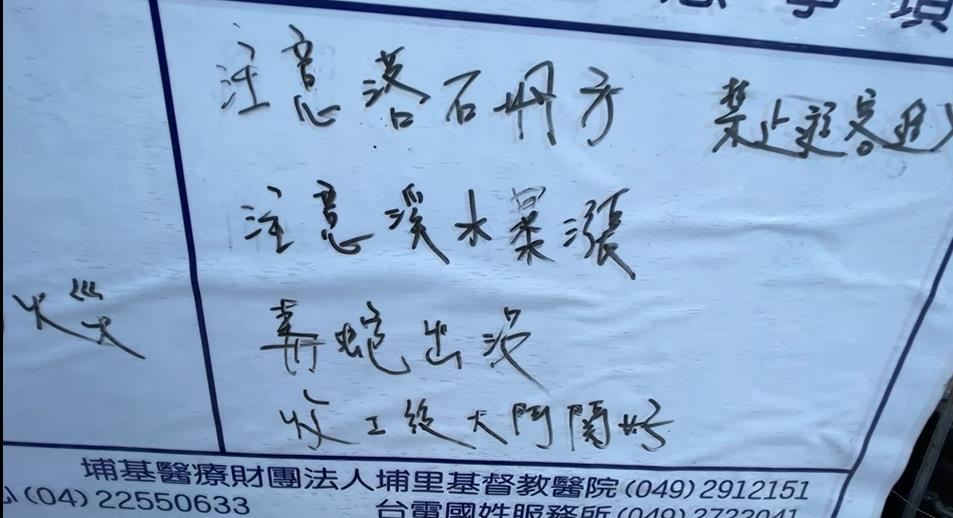 事項
注意落石坍方 禁止遊客進入
注意溪水暴漲
火災
毒蛇出沒
收工後大門關好
埔基醫療財團法人埔里基督教醫院(049)2912151
(04)22550633 台電國姓服務所(049)2722041